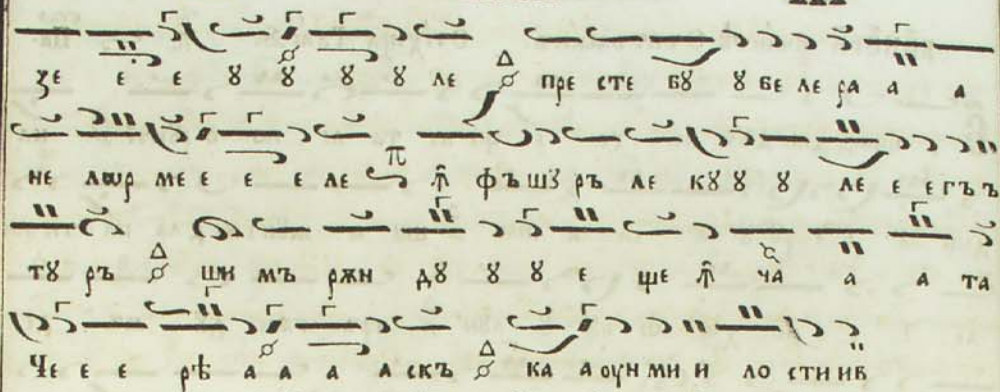 зе е е ꙋ ꙋ ꙋ ꙋ ле пре сте бꙋ ꙋ бе ле ра а а
не лѡр ме е е е ле п҃ ꙟ фъ шꙋ ръ ле кꙋ ꙋ ꙋ ле е е гъ ъ
тꙋ ръ ши мъ рѫн дꙋ ꙋ ꙋ е ще ꙟ ча а а та
Че е е рѣ а а а а скъ ка а оун ми и ло сти ив